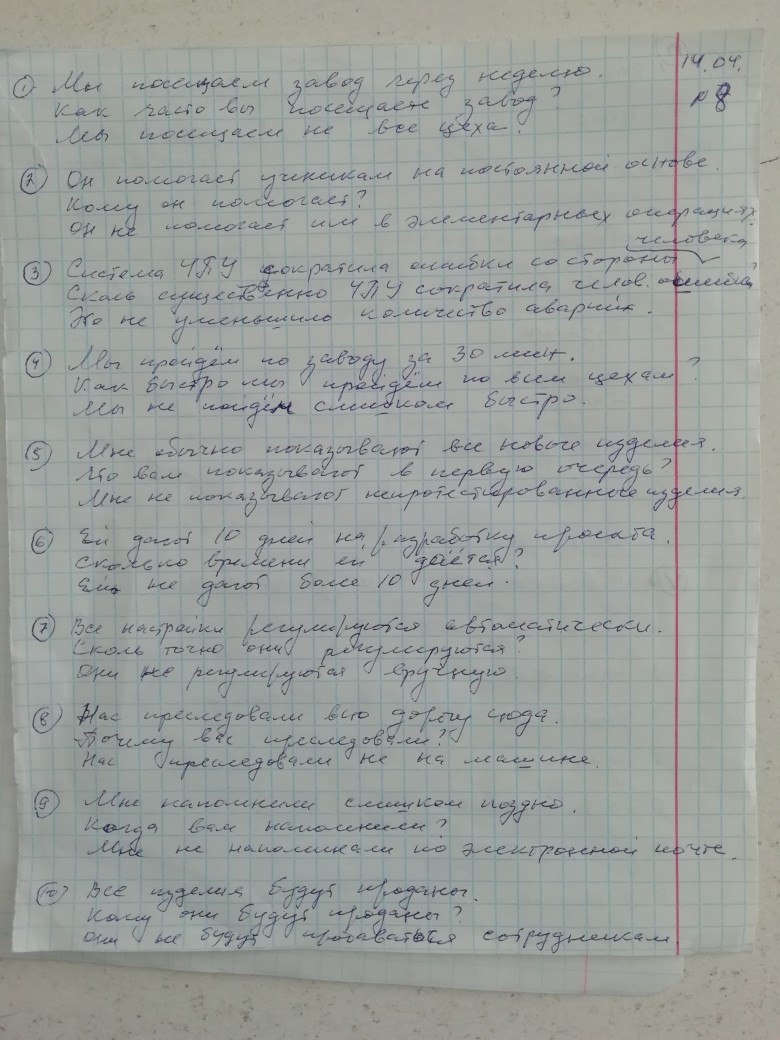 14.04.
№8
① Мы посещаем завод через неделю.
Как часто вы посещаете завод?
Мы посещаем не все цеха.
② Он помогает ученикам на постоянной основе.
Кому он помогает?
Он не помогает им в элементарных операциях.
человека
③ Система ЧПУ сократила ошибки со стороны
Сколь существенно ЧПУ сократила челов. ошибки?
Но не уменьшило количество аварий.
④ Мы пройдём по заводу за 30 мин.
Как быстро мы пройдём по всем цехам?
Мы не пойдём слишком быстро.
⑤ Мне обычно показывают все новые изделия.
Что вам показывают в первую очередь?
Мне не показывают непротестированные изделия.
⑥ Ей дают 10 дней на разработку проекта.
Сколько времени ей даётся?
Ей не дают более 10 дней.
⑦ Все настройки регулируются автоматически.
Сколь точно они регулируются?
Они не регулируются вручную.
⑧ Нас преследовали всю дорогу сюда.
Почему вас преследовали?
Нас преследовали не на машине.
⑨ Мне напомнили слишком поздно.
Когда вам напомнили?
Мне не напоминали по электронной почте.
⑩ Все изделия будут проданы.
Кому они будут проданы?
Они не будут продаваться сотрудникам.